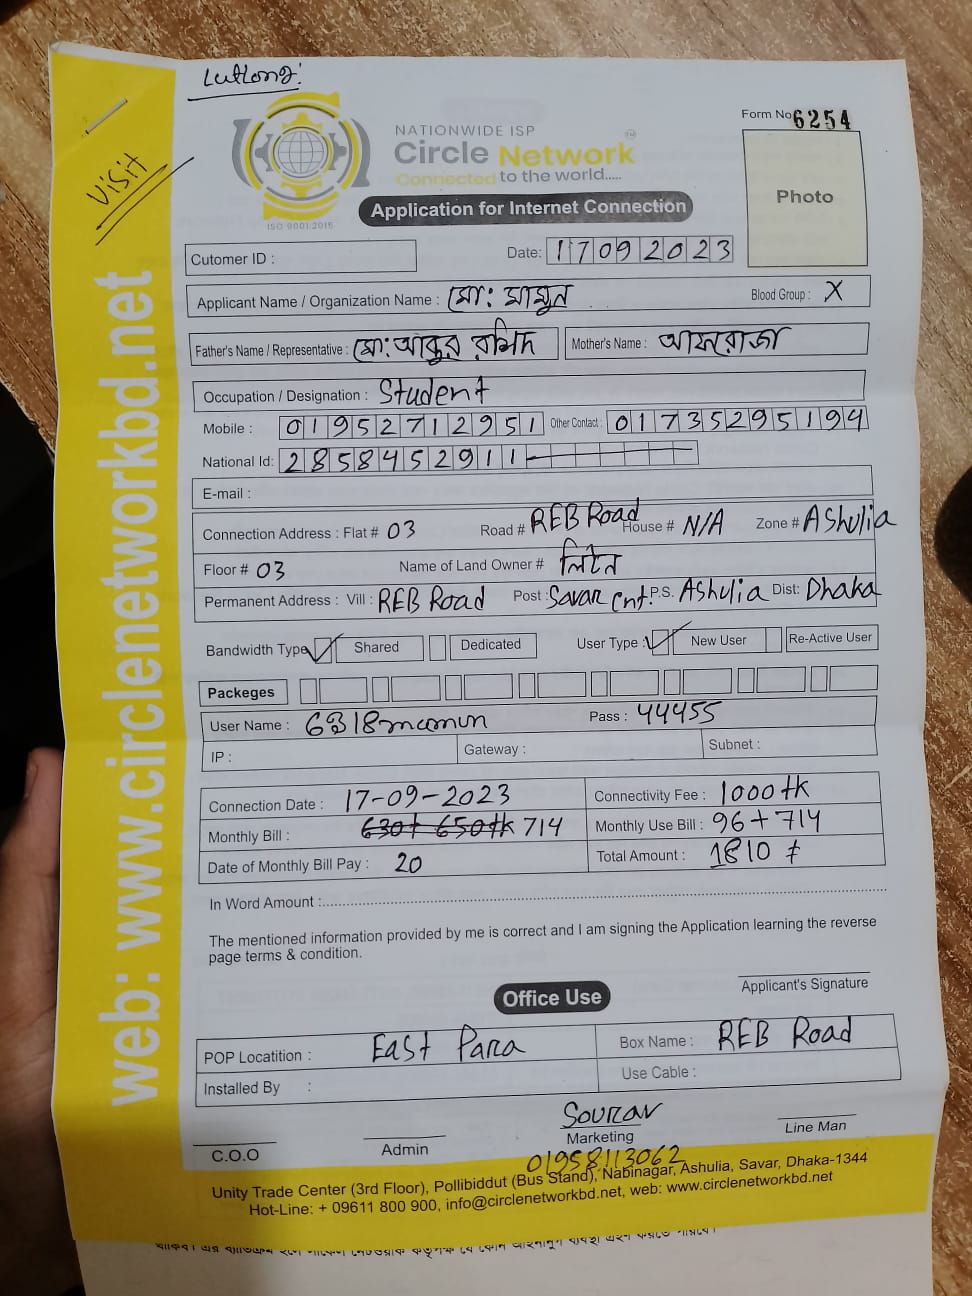 Lutlong:
VISIT
Form No 6254
NATIONWIDE ISP
Circle Network
Connected to the world.....
ISO 9001:2015
Photo
Application for Internet Connection
Cutomer ID :
Date: 17092023
Applicant Name / Organization Name : মো: মামুন Blood Group : X
Father's Name / Representative : মো: আব্দুর রশিদ Mother's Name : আফরোজা
Occupation / Designation : Student
Mobile : 01952712951 Other Contact : 01735295194
National Id: 2858452911
E-mail :
Connection Address : Flat # 03 Road # REB Road House # N/A Zone # Ashulia
Floor # 03 Name of Land Owner # লিটন
Permanent Address : Vill : REB Road Post : Savar Cnt. P.S. Ashulia Dist: Dhaka
Bandwidth Type Shared Dedicated User Type : New User Re-Active User
Packeges
User Name : 6318mamun Pass : 44455
IP : Gateway : Subnet :
Connection Date : 17-09-2023 Connectivity Fee : 1000tk
Monthly Bill : 630+ 650tk 714 Monthly Use Bill : 96+714
Date of Monthly Bill Pay : 20 Total Amount : 1810 ৳
In Word Amount :
The mentioned information provided by me is correct and I am signing the Application learning the reverse
page terms & condition.
Applicant's Signature
Office Use
POP Locatition : East Para Box Name : REB Road
Installed By : Use Cable :
Sourav
C.O.O Admin Marketing Line Man
01958113062
Unity Trade Center (3rd Floor), Pollibiddut (Bus Stand), Nabinagar, Ashulia, Savar, Dhaka-1344
Hot-Line: + 09611 800 900, info@circlenetworkbd.net, web: www.circlenetworkbd.net
web: www.circlenetworkbd.net